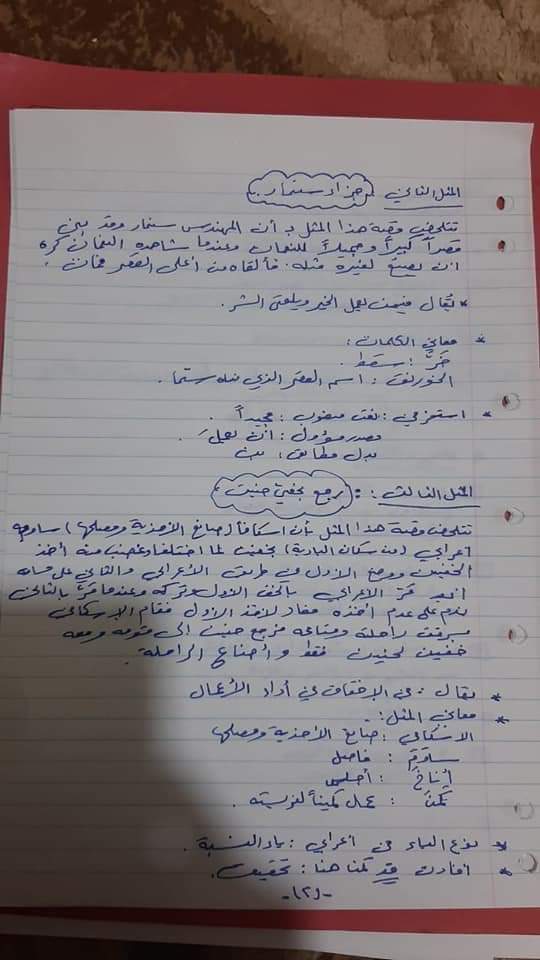 المثل الثاني : جزاء سنمار .
تتلخص قصة هذا المثل بـ أن المهندس سنمار وقد بنى
قصراً كبيراً وجميلاً للنعمان وعندما شاهده النعمان كره
ان يصنع لغيره مثله . فألقاه من أعلى القصر فمات .
* يُقال فيمن يعمل الخير ويلقى الشر .
* معاني الكلمات :
خرّ : سقط .
الخورنق : اسم القصر الذي بناه سنما .
* استخرجي : نعت منصوب : مجيداً .
مصدر مؤول : ان يعمل .
بدل مطابق :
المثل الثالث : رجع بخفي حنين
تتلخص قصة هذا المثل بأن اسكافاً (صانع الأحذية ومصلحها) ساومه
اعرابي (من سكان البادية) بخفين لما اختلفا وغضب منه أخذ
الخفين ووضع الأول في طريق الأعرابي والثاني على مسافة
ابعد مرّ الاعرابي بالخف الأول وتركه وعندما مرّ بالثاني
ندم على عدم أخذه فعاد لأخذ الأول فقام الإسكافي
بسرقت راحلة ومتاعه فرجع حنين الى قومه ومعه
خفين لحنين فقط وأضاع الراحلة .
* يقال : في الإخفاق في أداء الأعمال
* معاني المثل :
الاسكافي : صانع الأحذية ومصلحها
ساوَمَ : فاصل
أناخَ : أجلس
كَمَنَ : عمل كميناً لفريسته .
* نوع الياء في اعرابي : ياء النسبة .
* افادت قد كمنا هنا : تحقيق .
-(٢)-